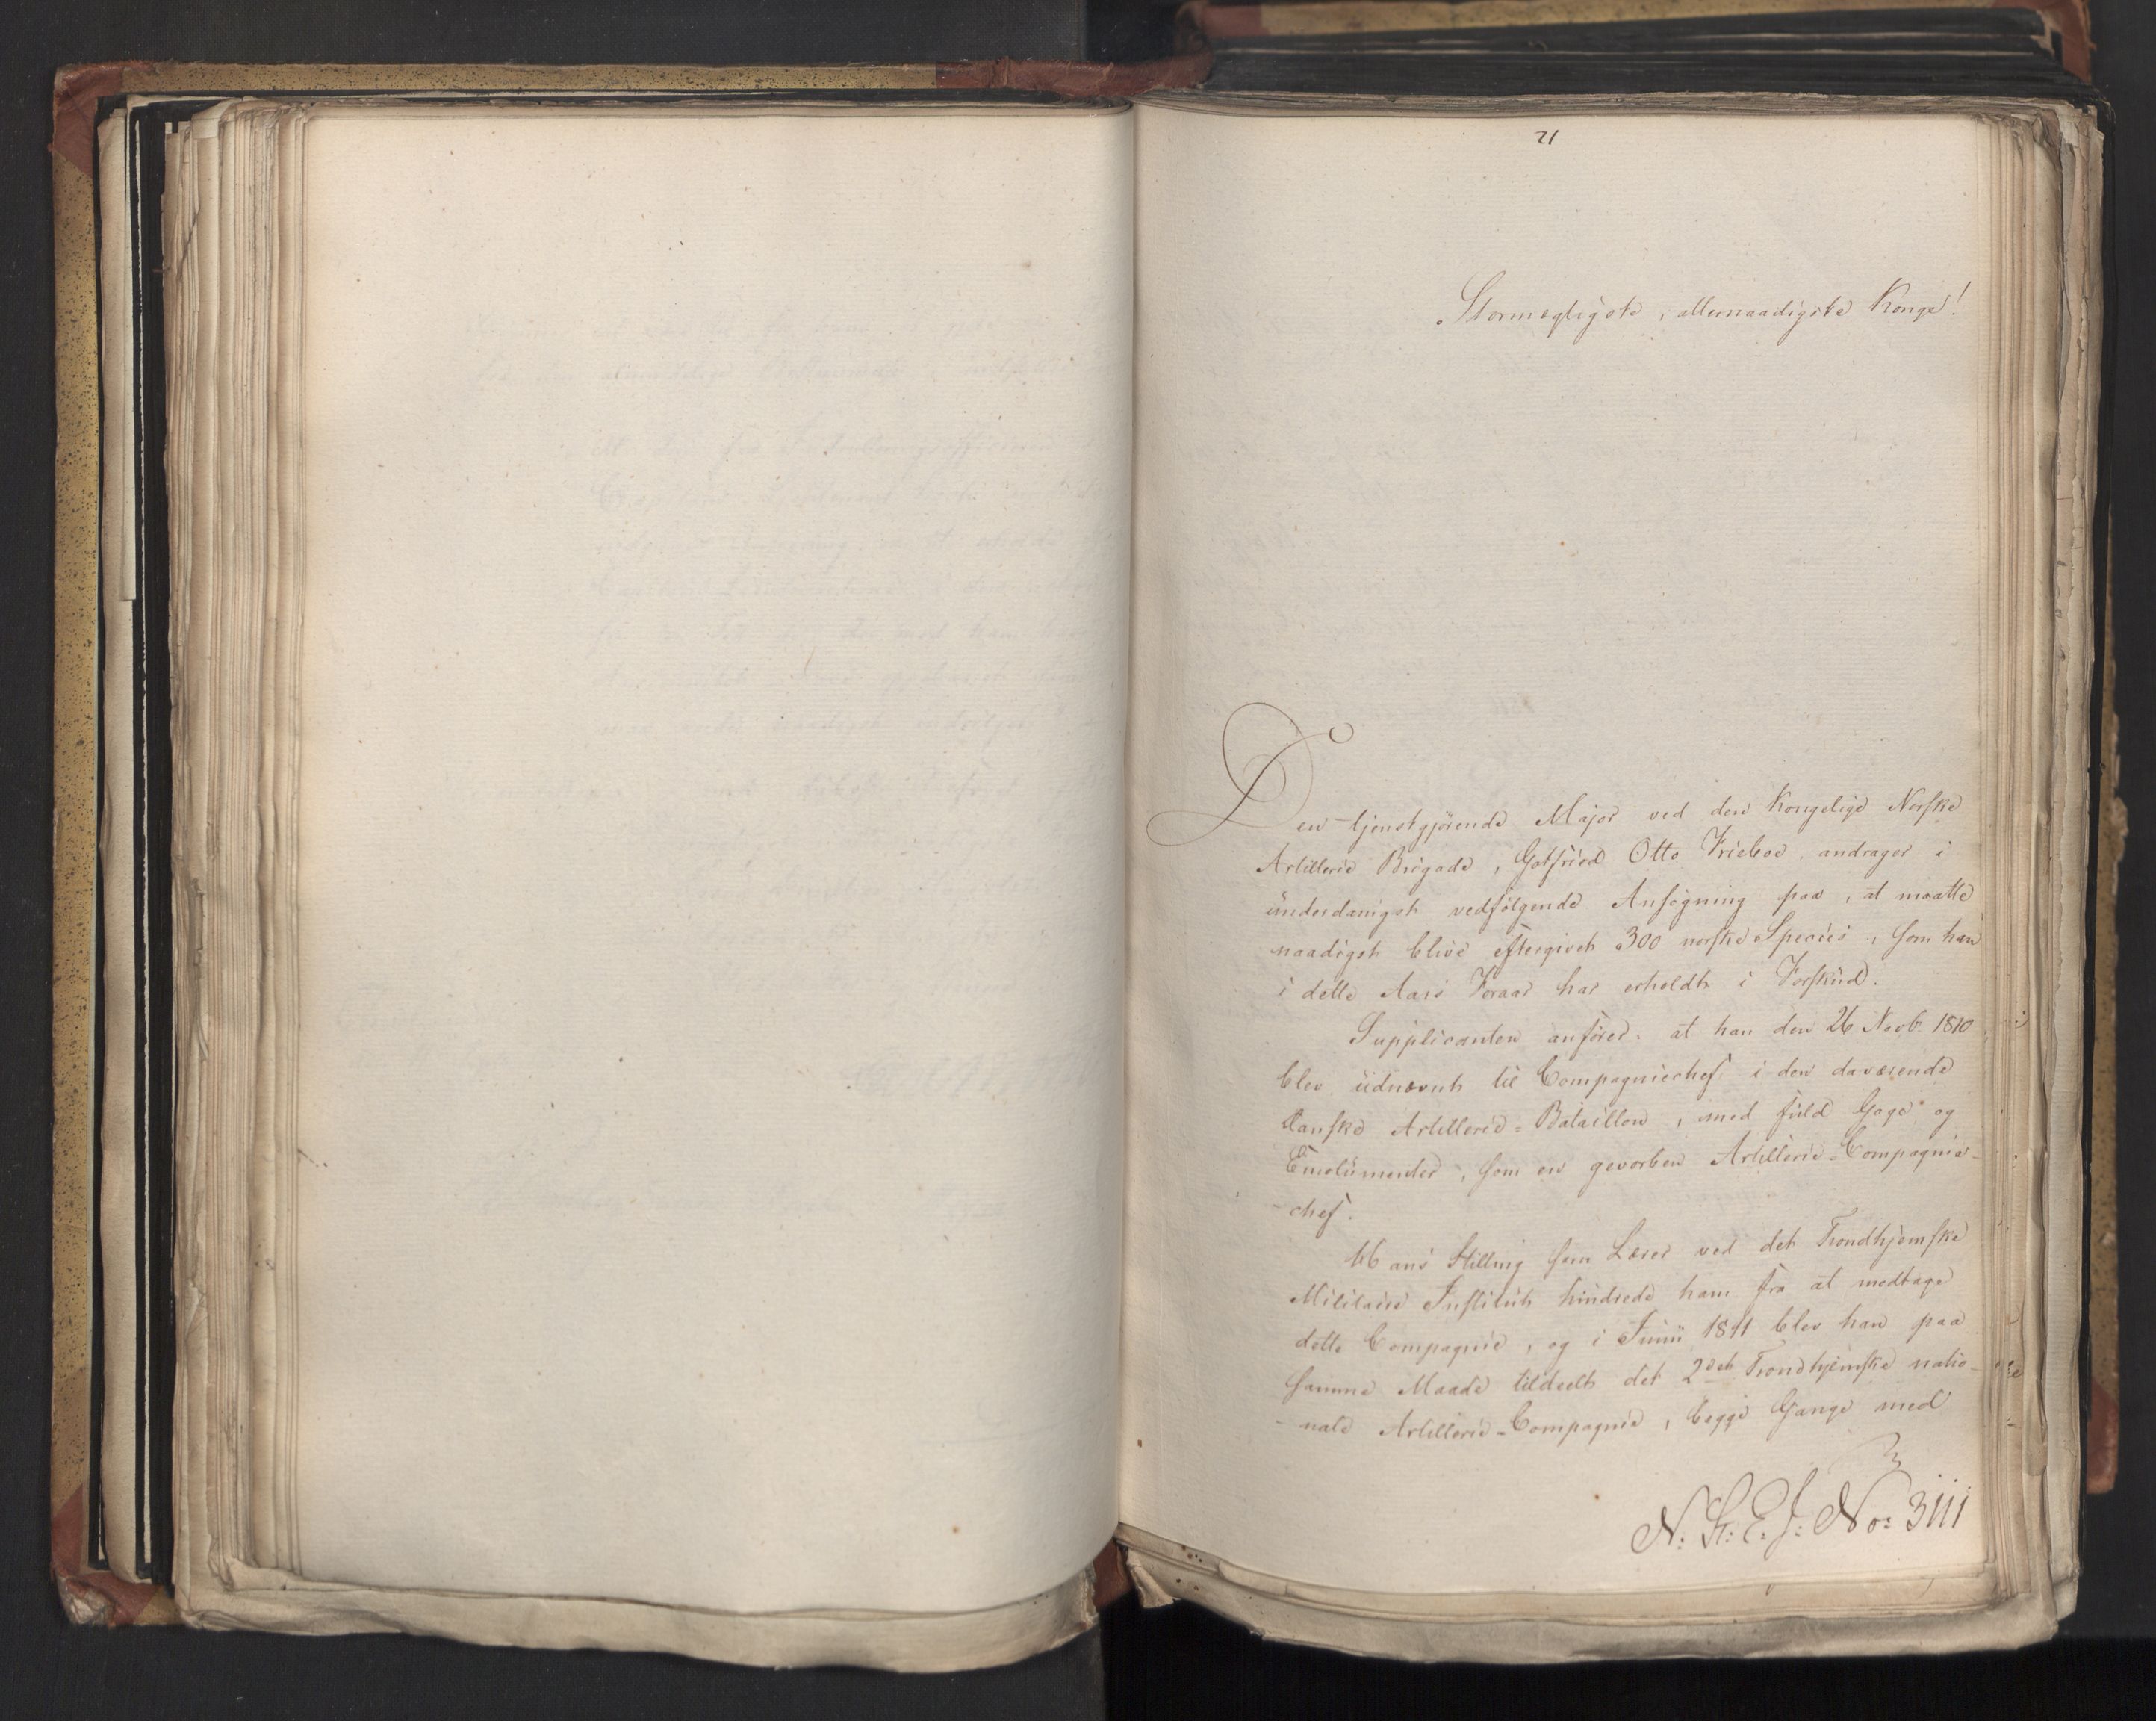 21
Stormægtigste, allernaadigste Konge!
Den tjenstgjörende Major ved den Kongelige Norske
Artillerie Brigade, Gotfried Otto Frieboe, andrager i
underdanigst vedfölgende Ansögning paa, at maatte
naadigst blive eftergivet 300 norske Species, som han
i dette Aars Foraar har erholdt i Forskud.
Supplicanten anförer: at han den 26 Novb. 1810
blev udnævnt til Compagniechef i den daværende
danske Artillerie-Bataillon, med fuld Gage og
Emolumenter, som en gevorben Artillerie-Compagnie-
-chef.
Hans Stilling som Lærer ved det Trondhjemske
Militaire Institut hindrede ham fra at modtage
dette Compagnie, og i Junii 1811 blev han paa
samme Maade tildeelt det 2det Trondhjemske natio-
-nale Artillerie-Compagnie, begge Gange med
N: St: E: J: No: 3111